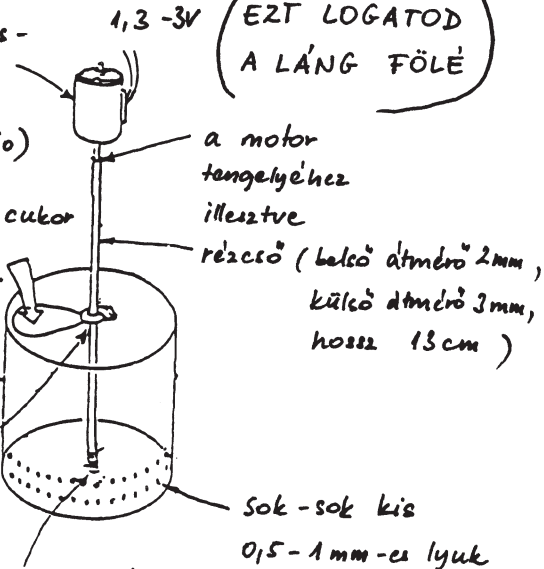 1,3 -3V
EZT LOGATOD
A LÁNG FÖLÉ
s-
o)
cukor
a motor
tengelyéhez
illesztve
rézcső (belső átmérő 2mm,
külső átmérő 3mm,
hossz 13cm)
Sok-sok kis
0,5-1mm-es lyuk